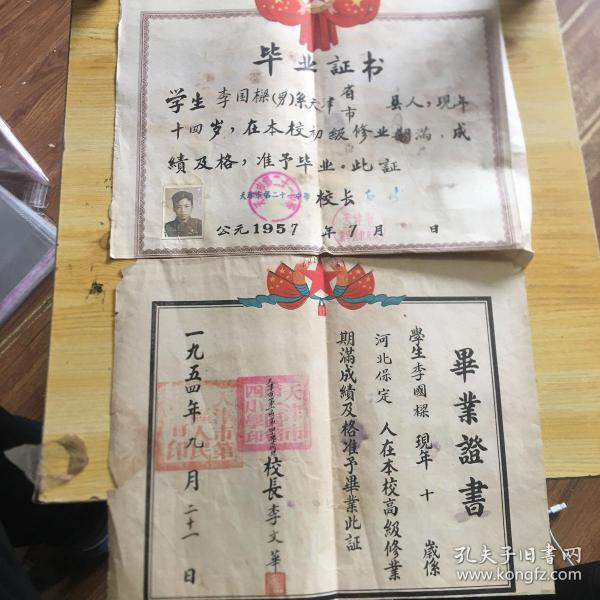 毕业证书
学生 李国樑(男)系天津省市 县人,现年
十四岁,在本校初级修业期满,成
績及格,准予毕业。此証
天津市第二十一中學 校长
公元1957年7月 日
畢業證書
學生李國樑現年十 歲係
河北保定 人在本校高級修業
期滿成績及格准予畢業此証
校長李文華
一九五四年九月二十一日
孔夫子旧書网
www.kongfz.com